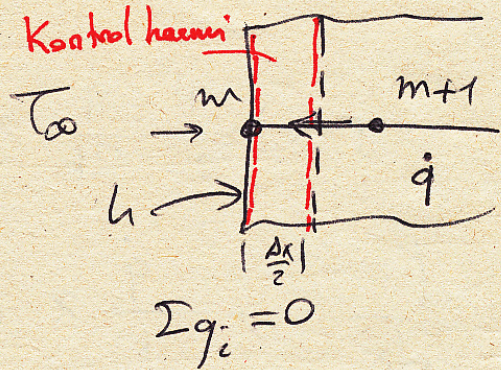 Kontrol hacmi
T∞
m
m+1
h
q̇
Δx/2
Σqi = 0